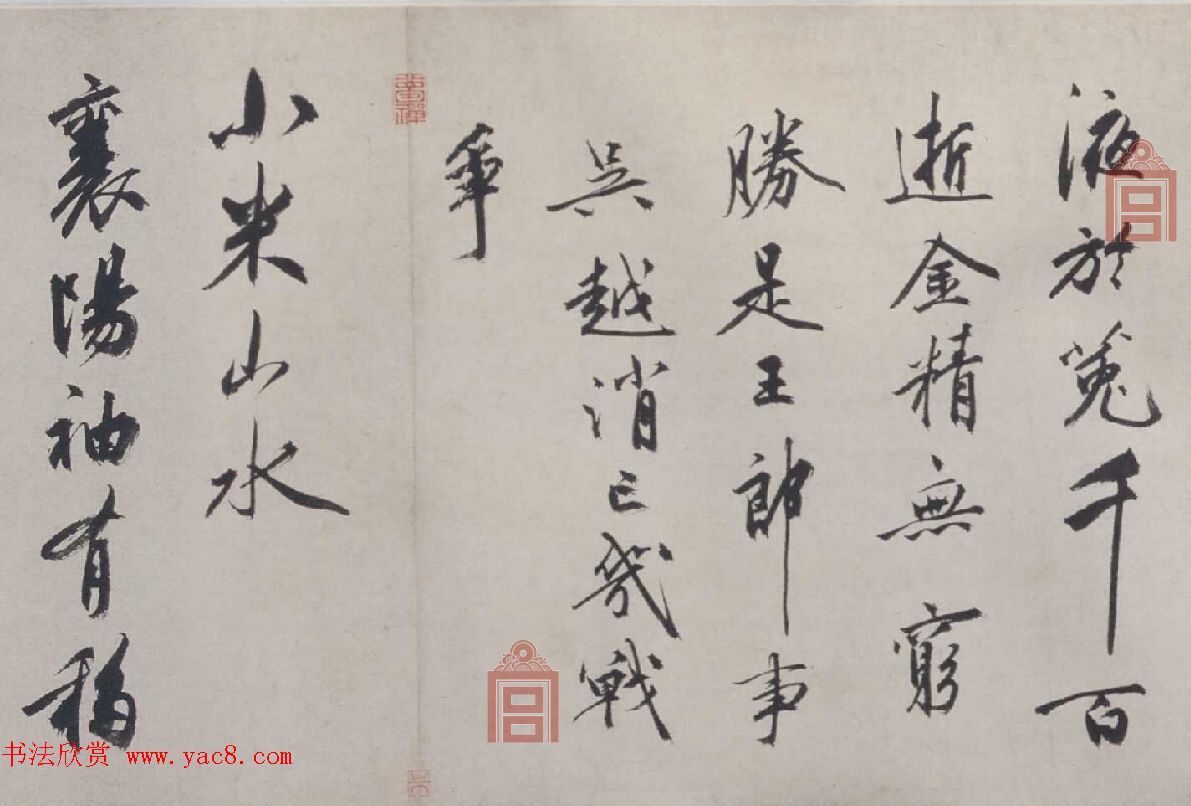 液於冤千百
逝金精無窮
勝是王郎事
吳越消已幾戰
爭
小米山水
襄陽袖有
书法欣赏 www.yac8.com